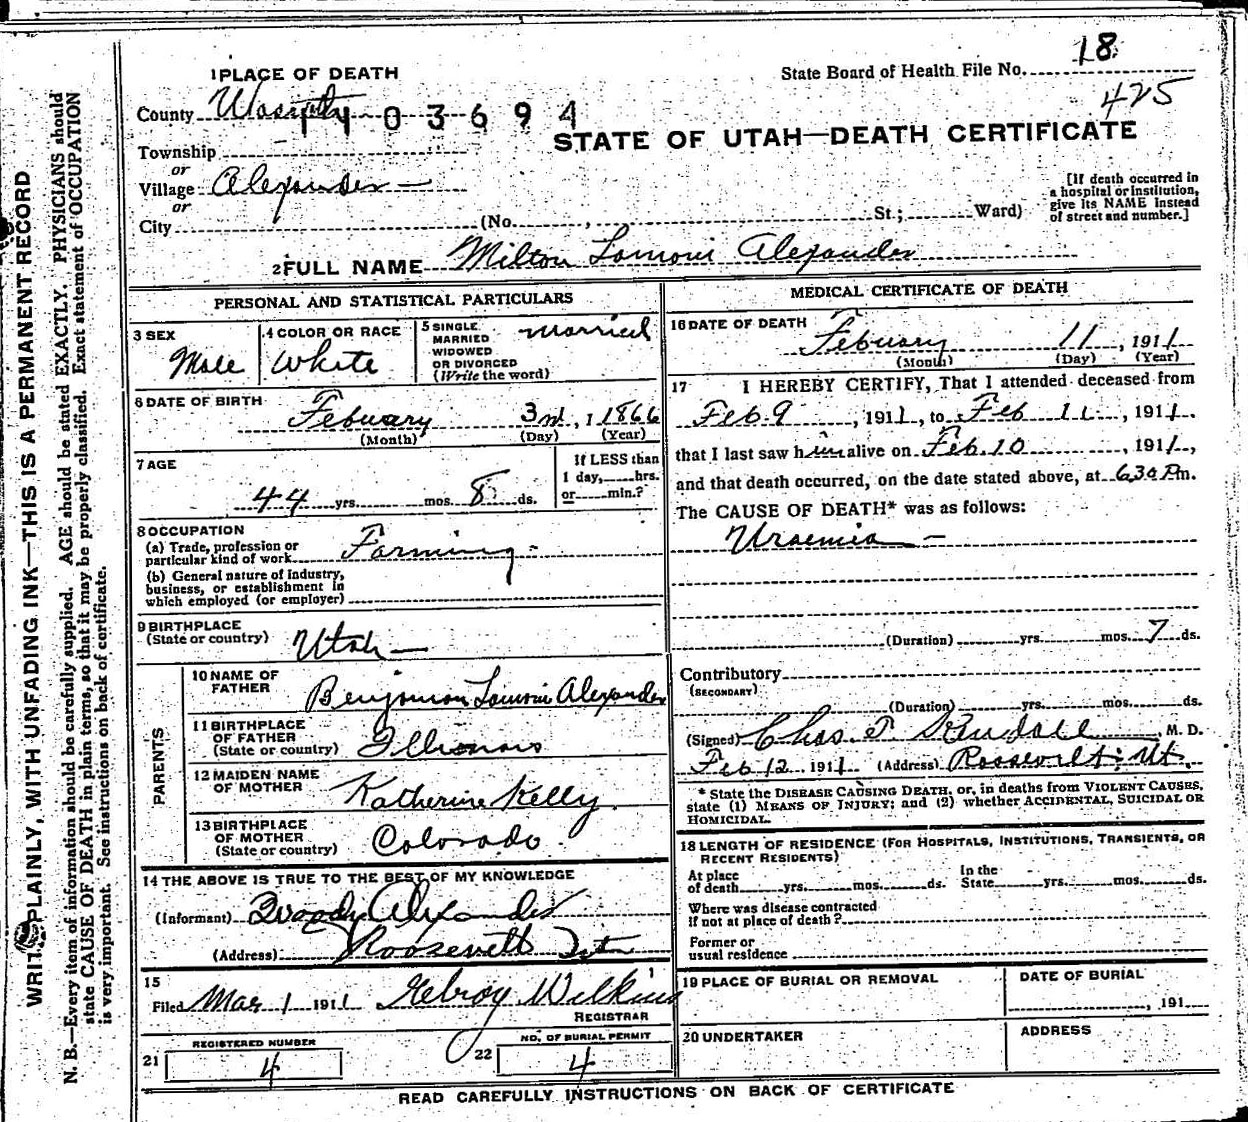 1 PLACE OF DEATH
State Board of Health File No. 18
425
County Wasatch
1103694
STATE OF UTAH—DEATH CERTIFICATE
Township
or
Village Alexander —
or
City (No. , St.; Ward)
[If death occurred in
a hospital or institution,
give its NAME instead
of street and number.]
2 FULL NAME Milton Lamoni Alexander
PERSONAL AND STATISTICAL PARTICULARS
3 SEX
Male
4 COLOR OR RACE
White
5 SINGLE
MARRIED
WIDOWED
OR DIVORCED
(Write the word)
Married
6 DATE OF BIRTH
Febuary 3rd, 1 1866
(Month) (Day) (Year)
7 AGE
44 yrs. mos. 8 ds.
If LESS than
1 day, hrs.
or min.?
8 OCCUPATION
(a) Trade, profession or
particular kind of work Farming -
(b) General nature of industry,
business, or establishment in
which employed (or employer)
9 BIRTHPLACE
(State or country) Utah —
PARENTS
10 NAME OF
FATHER Benjaman Lamoni Alexander
11 BIRTHPLACE
OF FATHER
(State or country) Illionois
12 MAIDEN NAME
OF MOTHER Katherine Kelly.
13 BIRTHPLACE
OF MOTHER
(State or country) Colorado.
14 THE ABOVE IS TRUE TO THE BEST OF MY KNOWLEDGE
(Informant) Alexander
(Address) Roosevelt
15
Filed Mar 1 1911 Wilkins
REGISTRAR
REGISTERED NUMBER
21 4
NO. OF BURIAL PERMIT
22 4
MEDICAL CERTIFICATE OF DEATH
16 DATE OF DEATH
Febuary 11, 1911
(Month) (Day) (Year)
17 I HEREBY CERTIFY, That I attended deceased from
Feb. 9, 1911, to Feb 11, 1911.
that I last saw him alive on Feb. 10, 1911,
and that death occurred, on the date stated above, at 630 Pm.
The CAUSE OF DEATH* was as follows:
Uraemia —
(Duration) yrs. mos. 7 ds.
Contributory
(SECONDARY)
(Duration) yrs. mos. ds.
(Signed) Chas. T. Kendall, M. D.
Feb 12 1911 (Address) Roosevelt, Ut.
* State the DISEASE CAUSING DEATH, or, in deaths from VIOLENT CAUSES,
state (1) MEANS OF INJURY; and (2) whether ACCIDENTAL, SUICIDAL OR
HOMICIDAL.
18 LENGTH OF RESIDENCE (FOR HOSPITALS, INSTITUTIONS, TRANSIENTS, OR
RECENT RESIDENTS)
At place
of death yrs. mos. ds.
In the
State yrs. mos. ds.
Where was disease contracted
if not at place of death?
Former or
usual residence
19 PLACE OF BURIAL OR REMOVAL
DATE OF BURIAL
, 191
20 UNDERTAKER
ADDRESS
READ CAREFULLY INSTRUCTIONS ON BACK OF CERTIFICATE
WRITE PLAINLY, WITH UNFADING INK—THIS IS A PERMANENT RECORD
N. B.—Every item of information should be carefully supplied. AGE should be stated EXACTLY. PHYSICIANS should
state CAUSE OF DEATH in plain terms, so that it may be properly classified. Exact statement of OCCUPATION
is very important. See instructions on back of certificate.